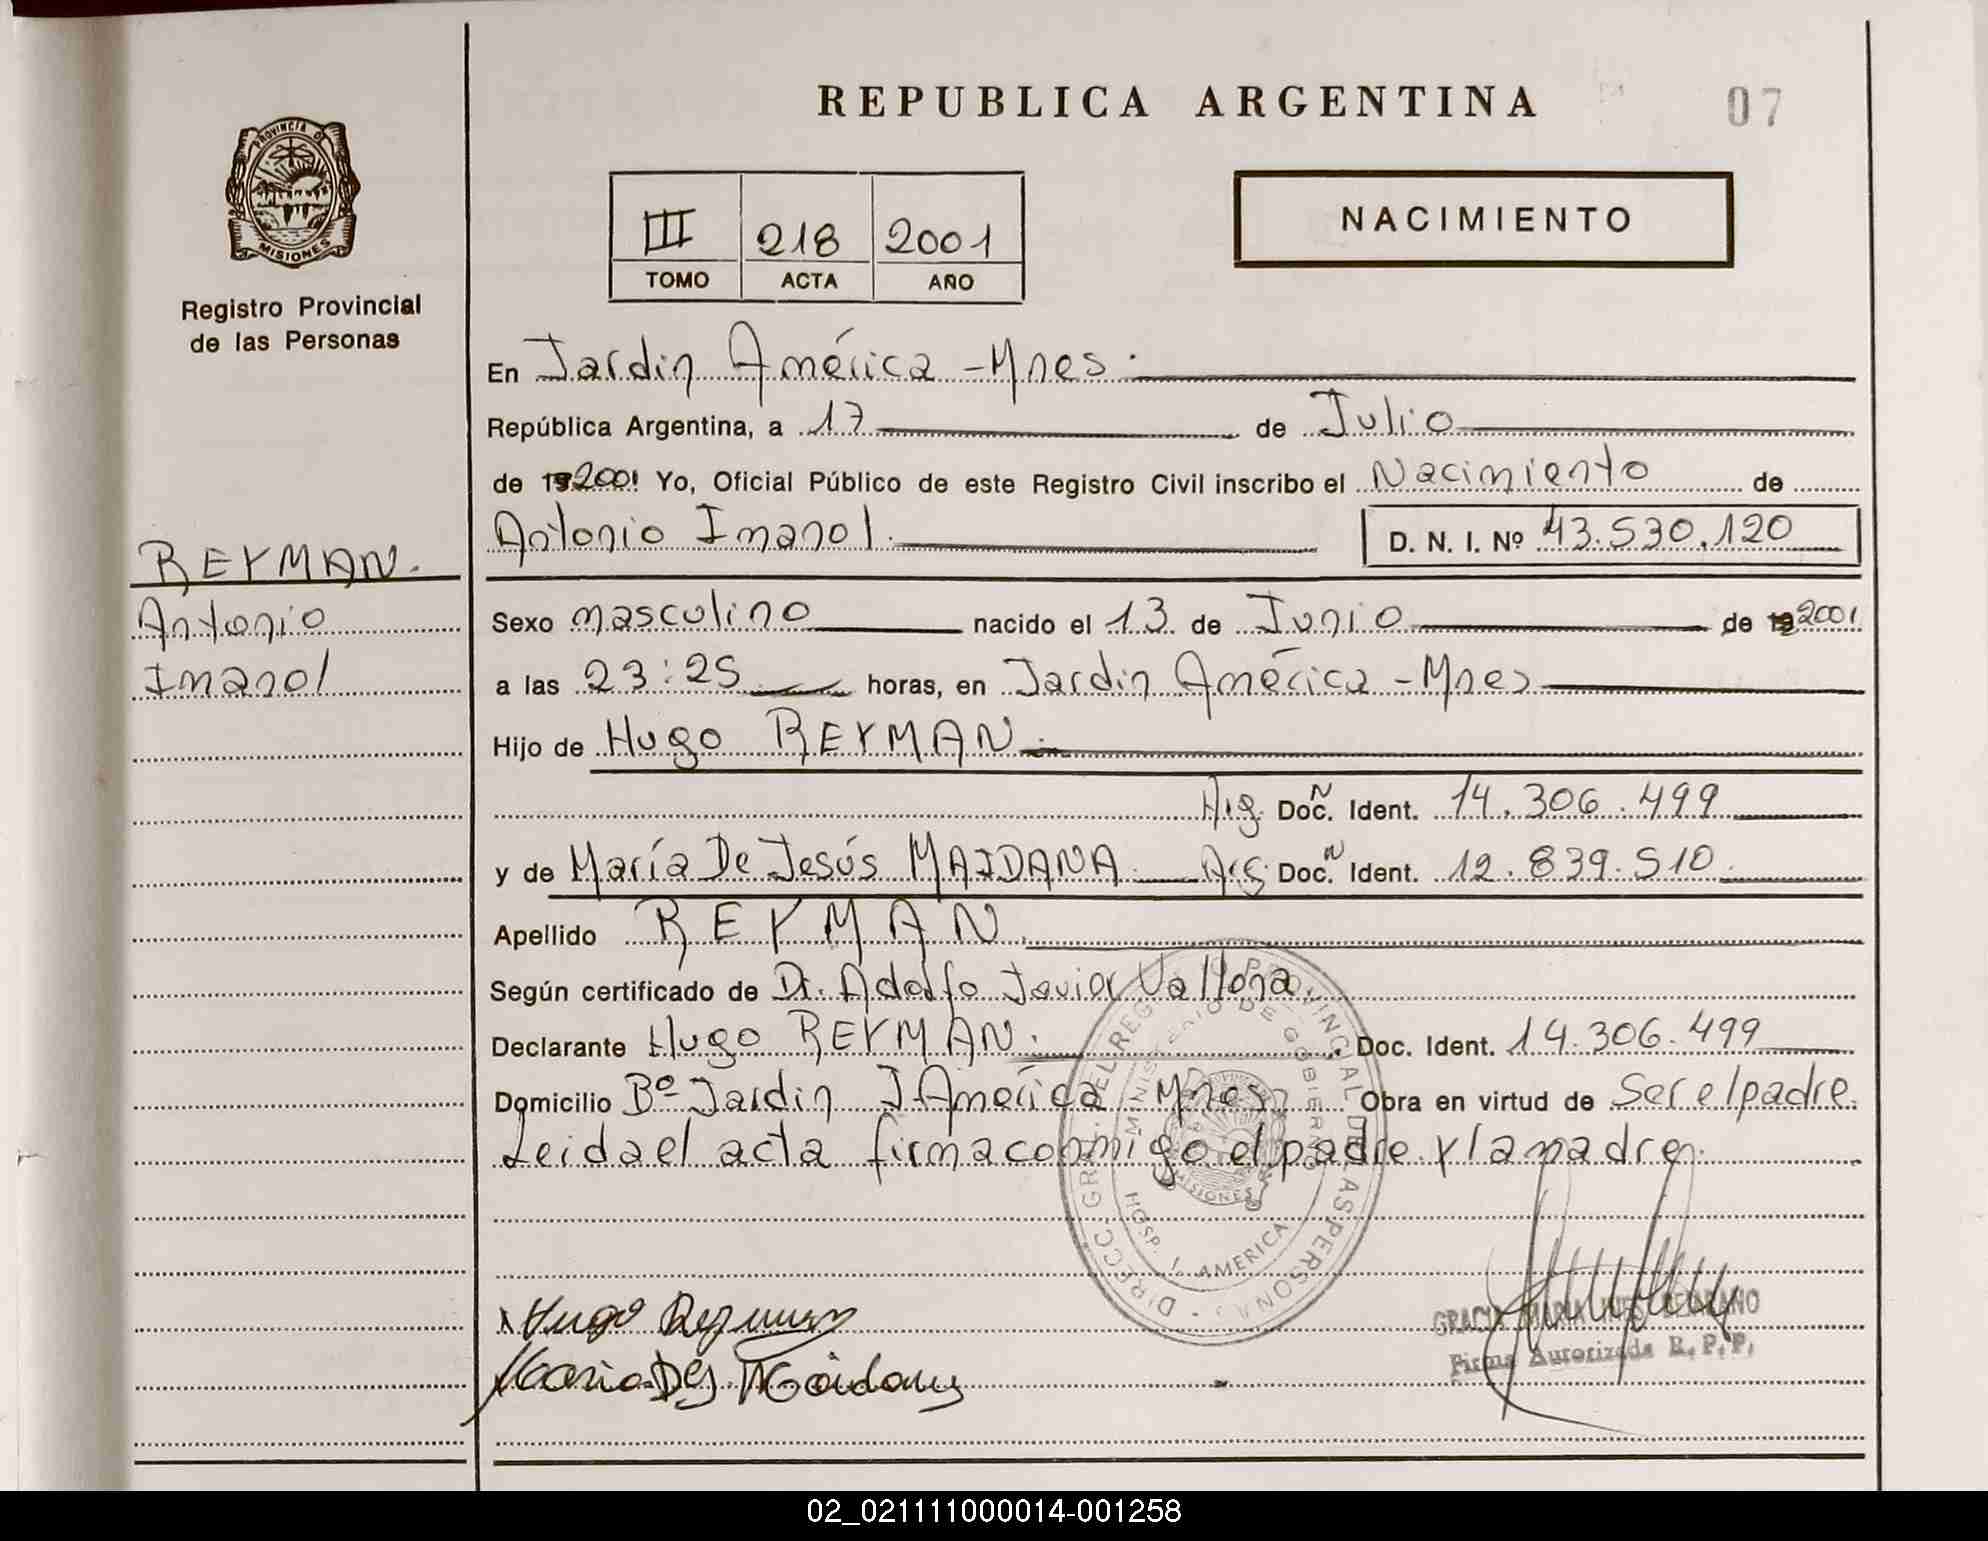 REPUBLICA ARGENTINA
07
PROVINCIA DE
MISIONES
Registro Provincial
de las Personas
III 218 2001
TOMO ACTA AÑO
NACIMIENTO
En Jardin América - Mnes.
República Argentina, a 17 de Julio
de 19 2001 Yo, Oficial Público de este Registro Civil inscribo el Nacimiento de
Antonio Imanol. D. N. I. Nº 43.530.120
REYMAN.
Antonio
Imanol
Sexo masculino nacido el 13 de Junio de 19 2001
a las 23:25 horas, en Jardin América - Mnes
Hijo de Hugo REYMAN.
Arg. Doc. N Ident. 14.306.499
y de María De Jesús MAIDANA. Arg. Doc. N Ident. 12.839.510.
Apellido REYMAN.
Según certificado de Dr. Adolfo Javier Vallona.
Declarante Hugo REYMAN. Doc. Ident. 14.306.499
Domicilio Bº Jardin J América Mnes. Obra en virtud de Ser el padre.
Leida el acta firma conmigo el padre y la madre.
DIRECC. GRAL. DEL REGISTRO PROVINCIAL DE LAS PERSONAS
MINISTERIO DE GOBIERNO
MISIONES
HOSP. J. AMERICA
x Hugo Reyman
Maria D J Maidana
GRACIA MARIA
Firma Autorizada R. P. P.
02_021111000014-001258